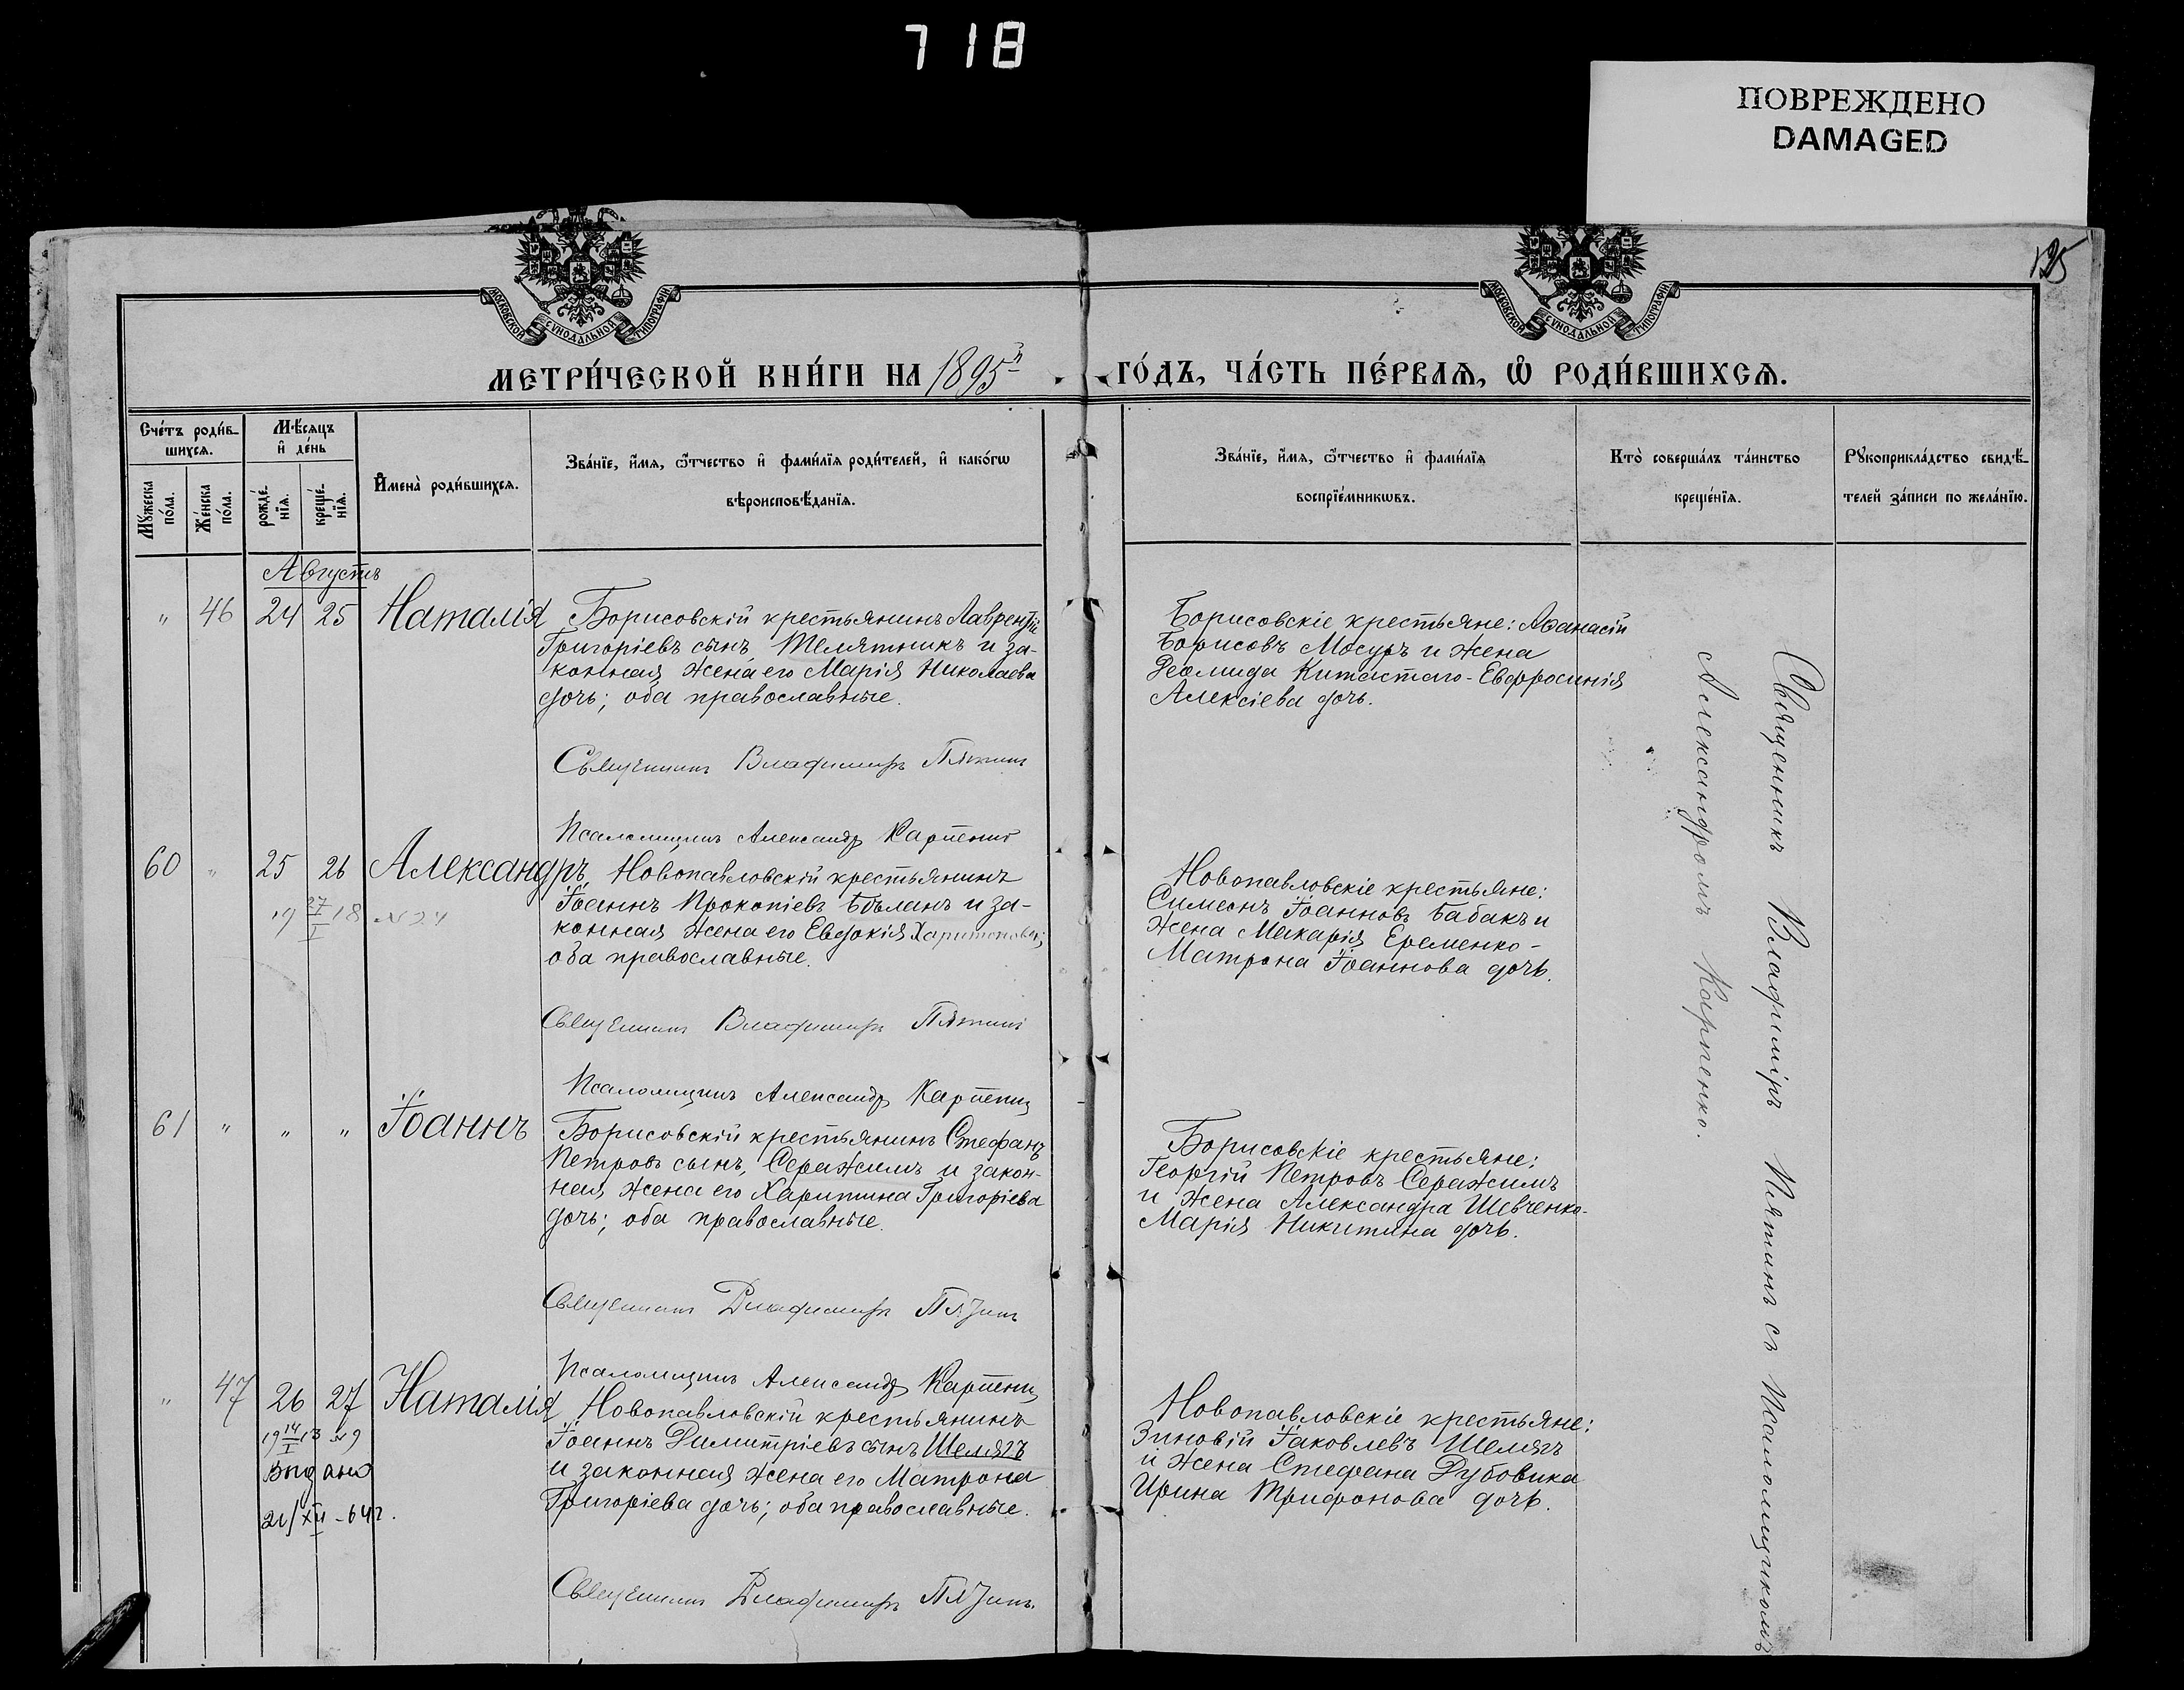 718
ПОВРЕЖДЕНО
DAMAGED
МОСКОВСКОЙ СѴНОДАЛЬНОЙ ТИПОГРАФІИ
МОСКОВСКОЙ СѴНОДАЛЬНОЙ ТИПОГРАФІИ
125
МЕТРИ́ЧЕСКОЙ КНИ́ГИ НА 1895й
ГО́ДЪ, ЧА́СТЬ ПЕ́РВАѦ, Ѡ РОДИ́ВШИХСѦ.
Сче́тъ роди́в-
шихсѧ.
Мѣ́сѧцъ
и҆ де́нь
Мꙋ́жеска по́ла.
Же́нска по́ла.
рожде́-
нїѧ.
креще́-
нїѧ.
И҆мена̀ роди́вшихсѧ.
Зва́нїе, и҆́мѧ, ѻ҆́тчество и҆ фами́лїѧ роди́телей, и҆ како́гѡ
вѣроисповѣ́данїѧ.
Зва́нїе, и҆́мѧ, ѻ҆́тчество и҆ фами́лїѧ
воспрїе́мникѡвъ.
Кто̀ соверша́лъ та́инство
креще́нїѧ.
Рꙋкоприкла́дство свидѣ́-
телей за́писи по жела́нїю.
Августъ
" 46 24 25 Наталія
Борисовскій крестьянинъ Лаврентій
Григоріевъ сынъ Телятникъ и за-
конная жена его Марія Николаева
дочь; оба православные.
Священникъ Владимиръ Пятинъ
Псаломщикъ Александръ Карпенко
Борисовскіе крестьяне: Аѳанасій
Борисовъ Мосуръ и жена
Деомида Китастаго - Евфросинія
Алексіева дочь.
60 " 25 26 Александръ
19 27/I 18 №24
Новопавловскій крестьянинъ
Іоаннъ Прокопіевъ Бѣланъ и за-
конная жена его Евдокія Харитонова;
оба православные.
Священникъ Владимиръ Пятинъ
Псаломщикъ Александръ Карпенко
Новопавловскіе крестьяне:
Симеонъ Іоанновъ Бабакъ и
жена Макарія Еременко -
Матрона Іоаннова дочь.
61 " " " Іоаннъ
Борисовскій крестьянинъ Стефанъ
Петровъ сынъ, Серажимъ и закон-
ная жена его Харитина Григоріева
дочь; оба православные.
Священникъ Владимиръ Пятинъ
Псаломщикъ Александръ Карпенко
Борисовскіе крестьяне:
Георгій Петровъ Серажимъ
и жена Александра Шевченко-
Марія Никитина дочь.
" 47 26 27 Наталія
19 14/I 13 №9
Выдано
21/XII-64г.
Новопавловскій крестьянинъ
Іоаннъ Димитріевъ сынъ Шелягъ
и законная жена его Матрона
Григоріева дочь; оба православные.
Священникъ Владимиръ Пятинъ.
Новопавловскіе крестьяне:
Зиновій Іаковлевъ Шелягъ
и жена Стефана Дубовика
Ирина Трифонова дочь.
Священникъ Владиміръ Пятинъ съ Псаломщикомъ
Александромъ Карпенко.